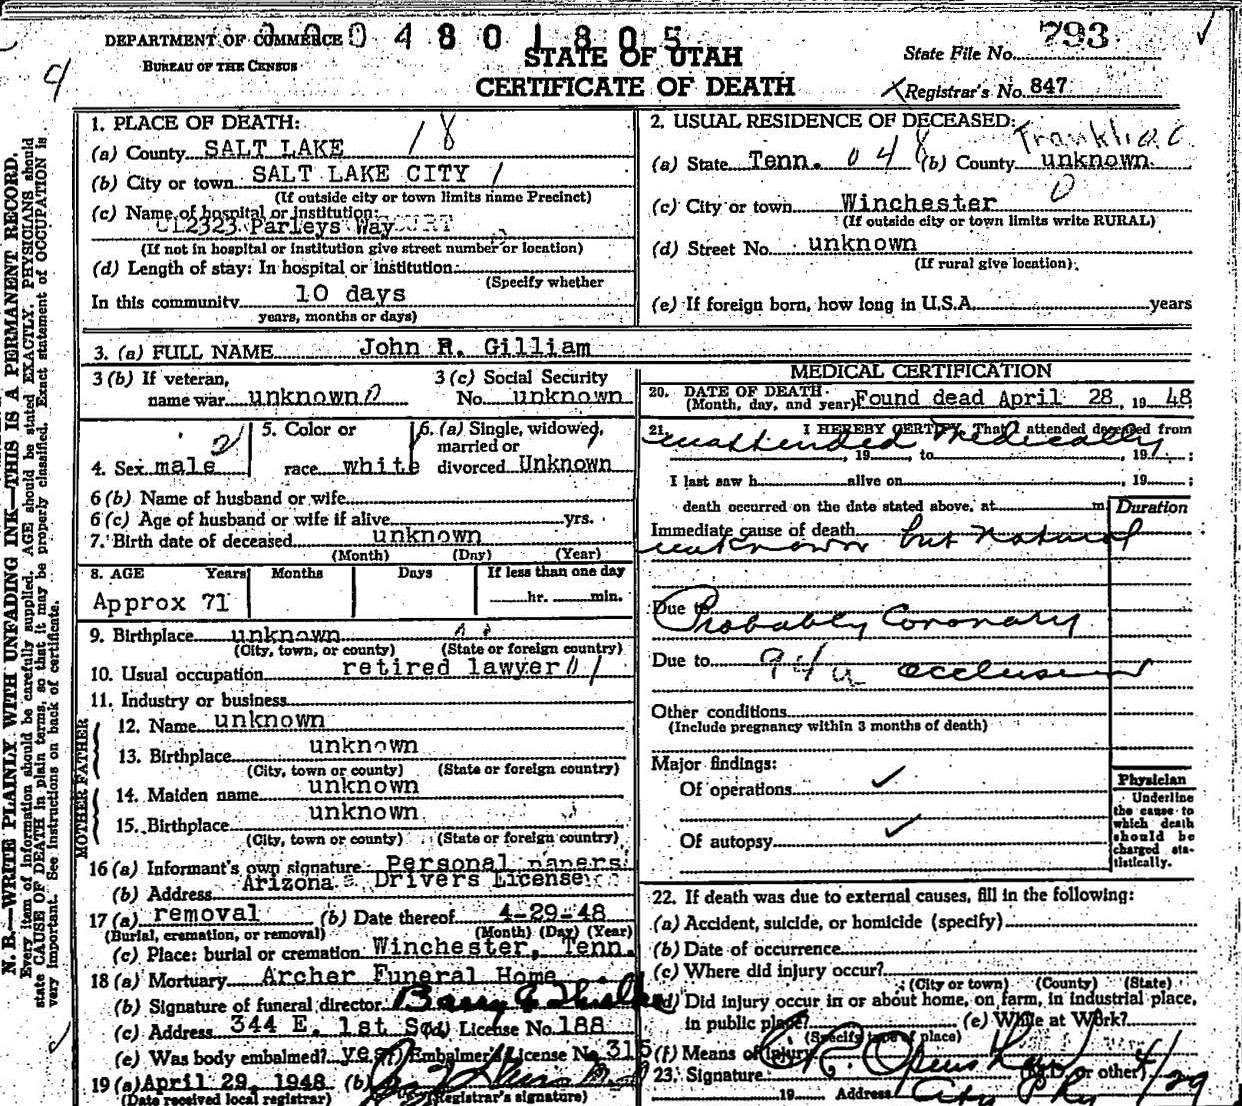 DEPARTMENT OF COMMERCE
BUREAU OF THE CENSUS
004801805
STATE OF UTAH
CERTIFICATE OF DEATH
State File No. 793
Registrar's No. 847
N. B.—WRITE PLAINLY WITH UNFADING INK—THIS IS A PERMANENT RECORD.
Every item of information should be carefully supplied. AGE should be stated EXACTLY. PHYSICIANS should
state CAUSE OF DEATH in plain terms, so that it may be properly classified. Exact statement of OCCUPATION is
very important. See instructions on back of certificate.
1. PLACE OF DEATH: 18
(a) County SALT LAKE
(b) City or town SALT LAKE CITY 1
(If outside city or town limits name Precinct)
(c) Name of hospital or institution:
2323 Parleys Way
(If not in hospital or institution give street number or location)
(d) Length of stay: In hospital or institution
(Specify whether
In this community 10 days
years, months or days)
2. USUAL RESIDENCE OF DECEASED:
(a) State Tenn. 048 (b) County unknown
(c) City or town Winchester 0
(If outside city or town limits write RURAL)
(d) Street No. unknown
(If rural give location)
(e) If foreign born, how long in U.S.A. years
3. (a) FULL NAME John R. Gilliam
3 (b) If veteran, name war unknown
3 (c) Social Security No. unknown
4. Sex male
5. Color or race white
6. (a) Single, widowed, married or divorced Unknown
6 (b) Name of husband or wife
6 (c) Age of husband or wife if alive yrs.
7. Birth date of deceased unknown
(Month) (Day) (Year)
8. AGE Years Months Days If less than one day
Approx 71 hr. min.
9. Birthplace unknown
(City, town, or county) (State or foreign country)
10. Usual occupation retired lawyer
11. Industry or business
FATHER
12. Name unknown
13. Birthplace unknown
(City, town or county) (State or foreign country)
MOTHER
14. Maiden name unknown
15. Birthplace unknown
(City, town or county) (State or foreign country)
16 (a) Informant's own signature Personal papers
(b) Address Arizona Drivers License
17 (a) removal (b) Date thereof 4-29-48
(Burial, cremation, or removal) (Month) (Day) (Year)
(c) Place: burial or cremation Winchester, Tenn.
18 (a) Mortuary Archer Funeral Home
(b) Signature of funeral director
(c) Address 344 E. 1st So. (d) License No. 188
(e) Was body embalmed? yes (f) Embalmer's License No. 315
19 (a) April 29, 1948 (b)
(Date received local registrar) (Registrar's signature)
MEDICAL CERTIFICATION
20. DATE OF DEATH
(Month, day, and year) Found dead April 28, 1948
21. I HEREBY CERTIFY, That I attended deceased from
unattended medically
, 19 , to , 19 ;
I last saw h alive on , 19 ;
death occurred on the date stated above, at m.
Duration
Immediate cause of death
unknown but natural
Due to Probably Coronary
Due to 94a occlusion
Other conditions
(Include pregnancy within 3 months of death)
Major findings:
Of operations ✓
Of autopsy ✓
Physician
Underline
the cause to
which death
should be
charged sta-
tistically.
22. If death was due to external causes, fill in the following:
(a) Accident, suicide, or homicide (specify)
(b) Date of occurrence
(c) Where did injury occur?
(City or town) (County) (State)
(d) Did injury occur in or about home, on farm, in industrial place,
in public place? (e) While at Work?
(Specify type of place)
(f) Means of injury
23. Signature (M.D. or other) 4/29
19 Address City